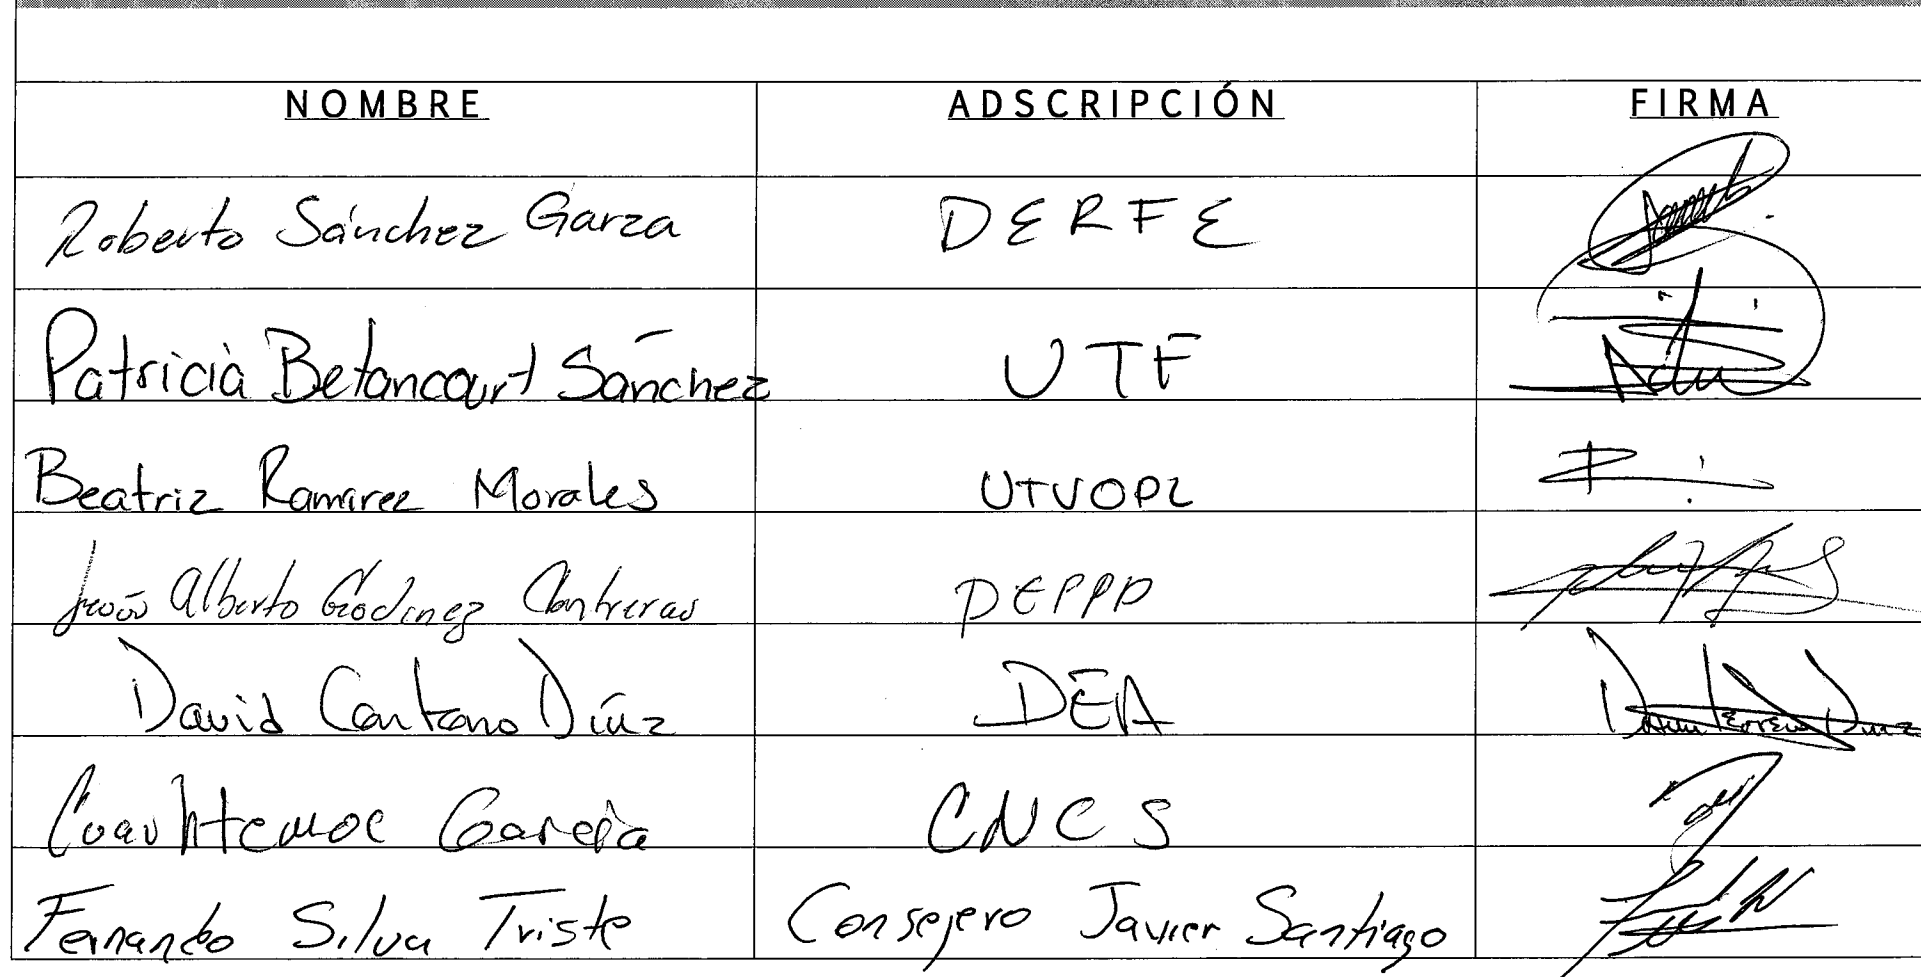 NOMBRE ADSCRIPCIÓN FIRMA
Roberto Sánchez Garza DERFE
Patricia Betancourt Sánchez UTF
Beatriz Ramirez Morales UTVOPL
Jesús Alberto Godinez Contreras DEPPP
David Díaz DEA
Cuauhtemoc García CNCS
Fernando Silva Triste Consejero Javier Santiago